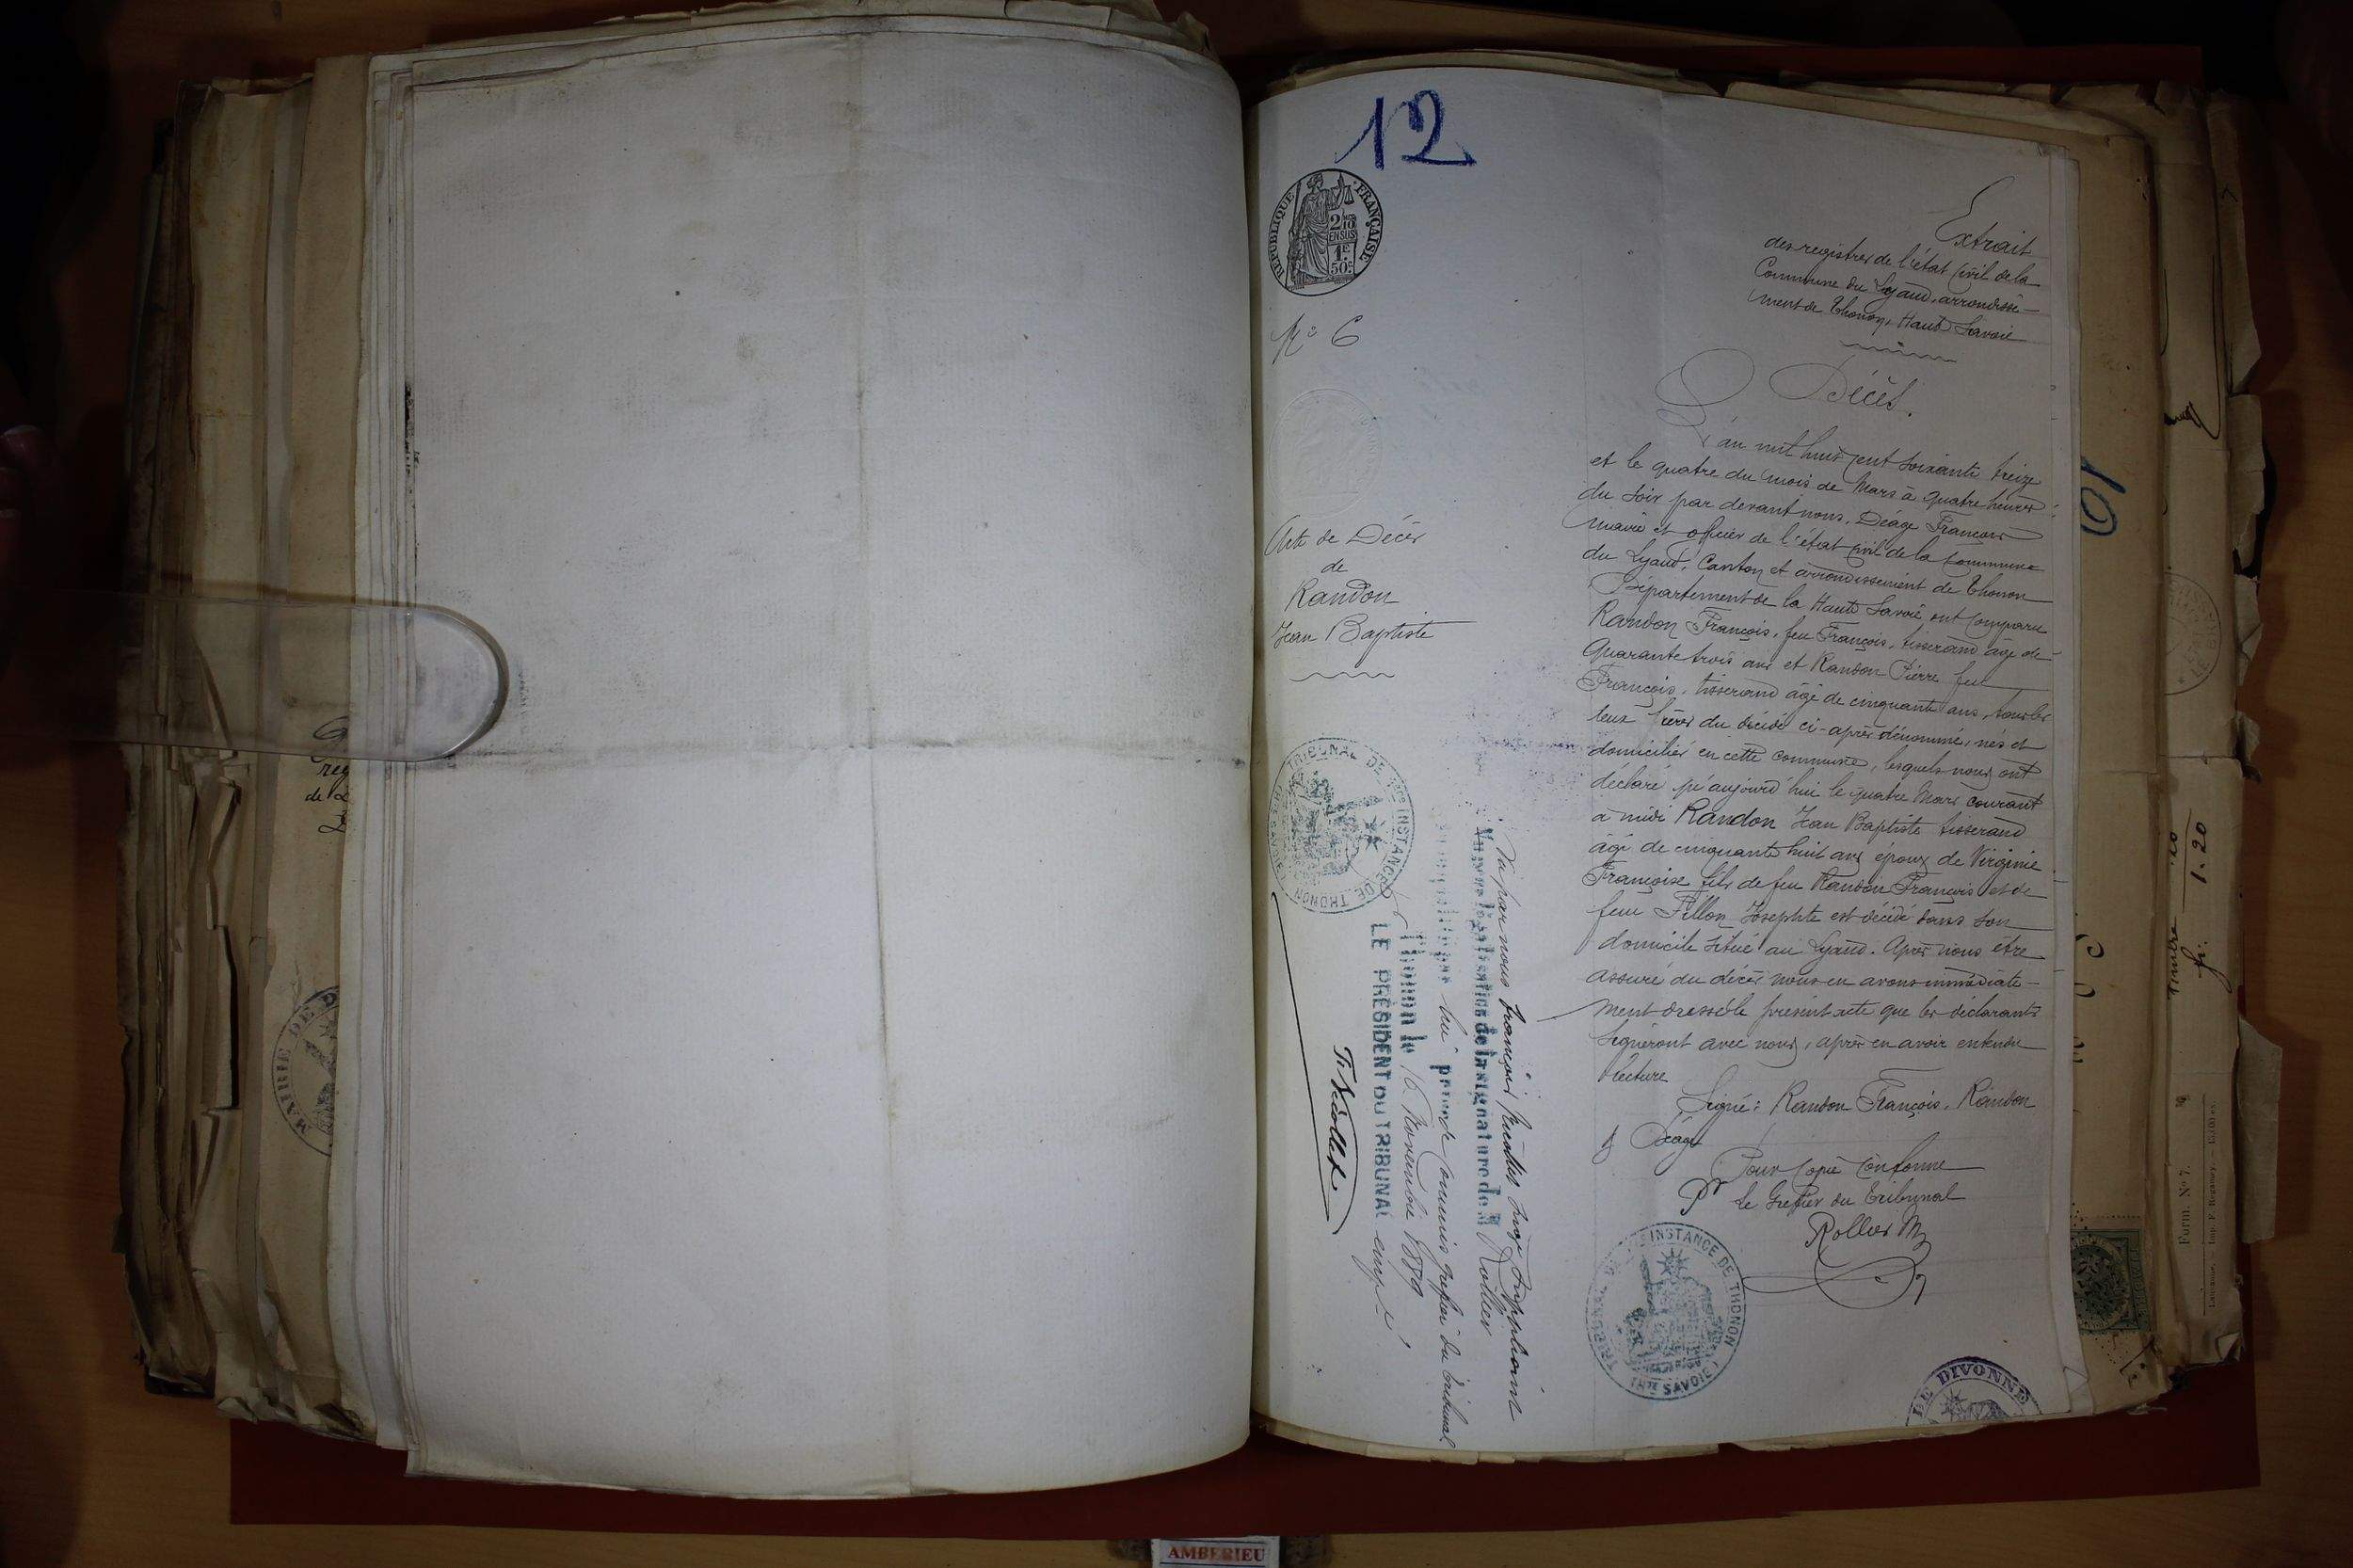 12
REPUBLIQUE FRANÇAISE
2/10
EN SUS
1F.
50c
Nº 6
Acte de Décès
de
Randon
Jean Baptiste
Extrait
des registres de l'état civil de la
Commune du Lyaud, arrondisse-
ment de Thonon, Haute Savoie
Décès.
L'an mil huit cent soixante treize
et le quatre du mois de Mars à quatre heures
du soir par devant nous, Déage François
maire et officier de l'état civil de la commune
du Lyaud, Canton et arrondissement de Thonon
Département de la Haute Savoie, ont comparu
Randon François, feu François, tisserand âgé de
quarante trois ans et Randon Pierre feu
François, tisserand âgé de cinquante ans, tous les
deux frères du décédé ci-après dénommé, nés et
domiciliés en cette commune, lesquels nous ont
déclaré qu'aujourd'hui le quatre Mars courant
à midi Randon Jean Baptiste tisserand
âgé de cinquante huit ans époux de Virginie
Françoise fils de feu Randon François et de
feue Fillon Josephte est décédé dans son
domicile situé au Lyaud. Après nous être
assuré du décès nous en avons immédiate-
ment dressé le présent acte que les déclarants
signeront avec nous, après en avoir entendu
lecture
Signé: Randon François, Randon
& Déage
Pour copie conforme
Pr le Greffier du Tribunal
Rollier
TRIBUNAL DE 1re INSTANCE DE THONON
Hte SAVOIE
DE DIVONNE
Vu par nous François juge suppléant
Vu pour légalisation de la signature de M Rollier
lui précède commis greffier du tribunal
Thonon le 16 Novembre 1889
LE PRÉSIDENT DU TRIBUNAL empé
TRIBUNAL DE 1re INSTANCE DE THONON
MAIRIE DE
reg
de
10
Timbre
fr. 1.20
Form. Nº 7.
AMBERIEU